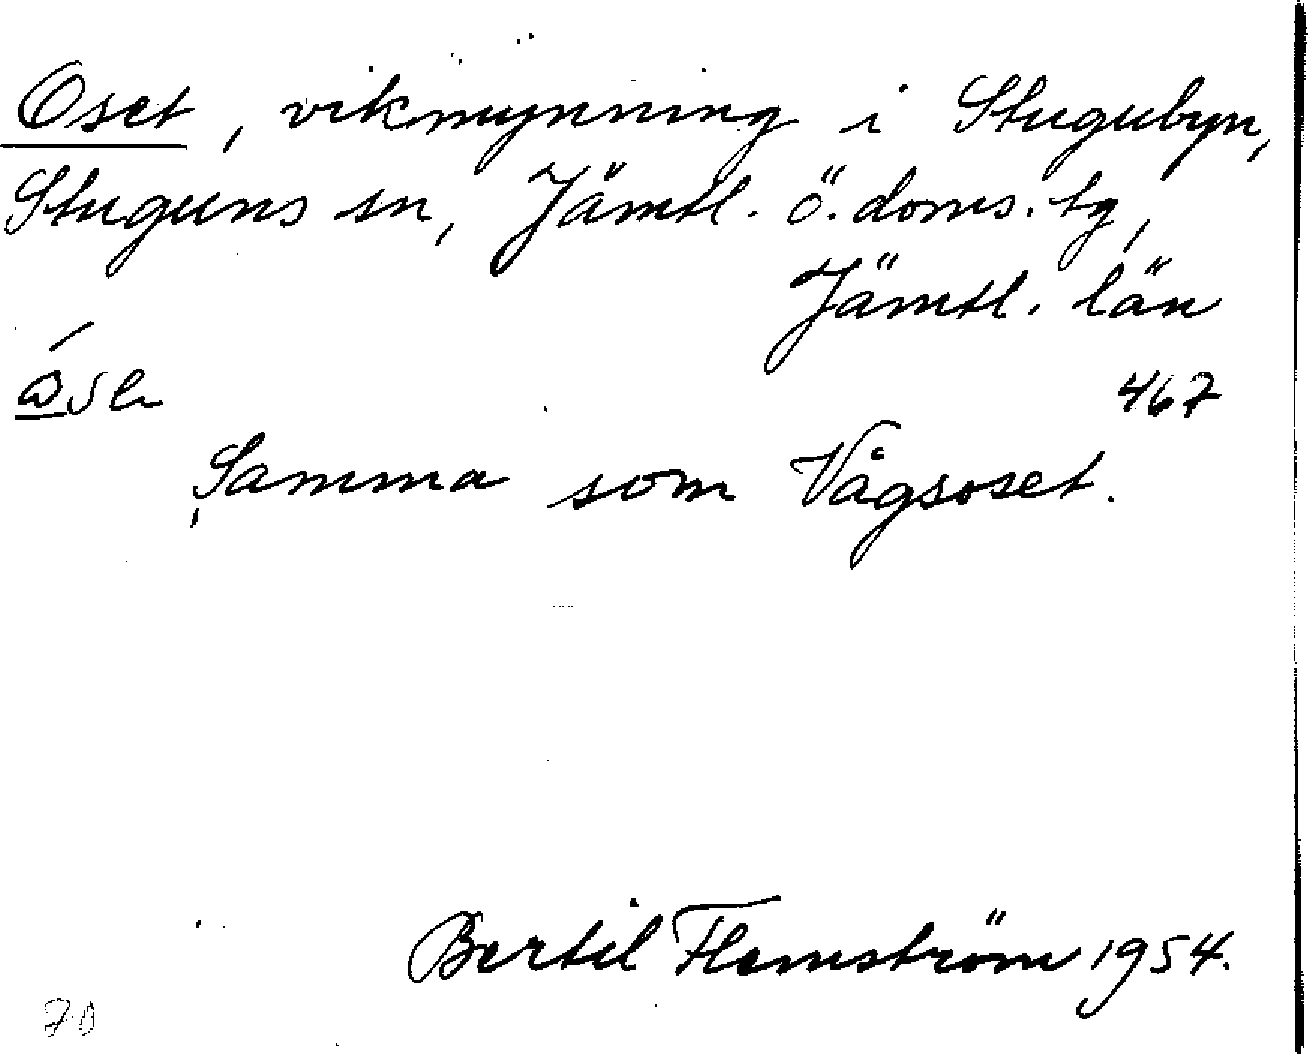 Oset, vikmynning i Stugubyn,
Stuguns sn, Jämtl. ö. doms. tg,
Jämtl. län
467
Samma som Vågsoset.
Bertil Flemström 1954.
70